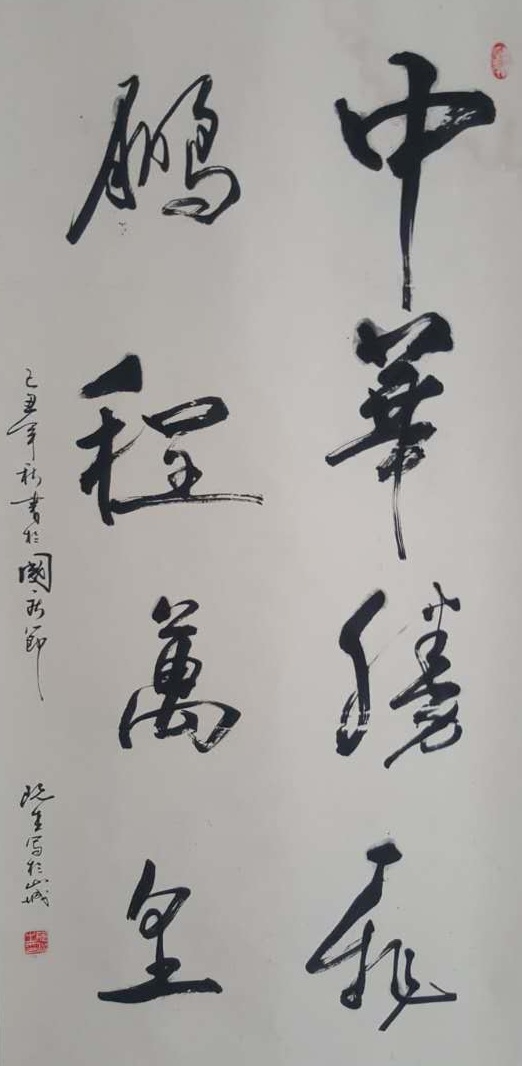 中華騰飛
鵬程萬里
己丑年秋書於國慶節
生写於山城